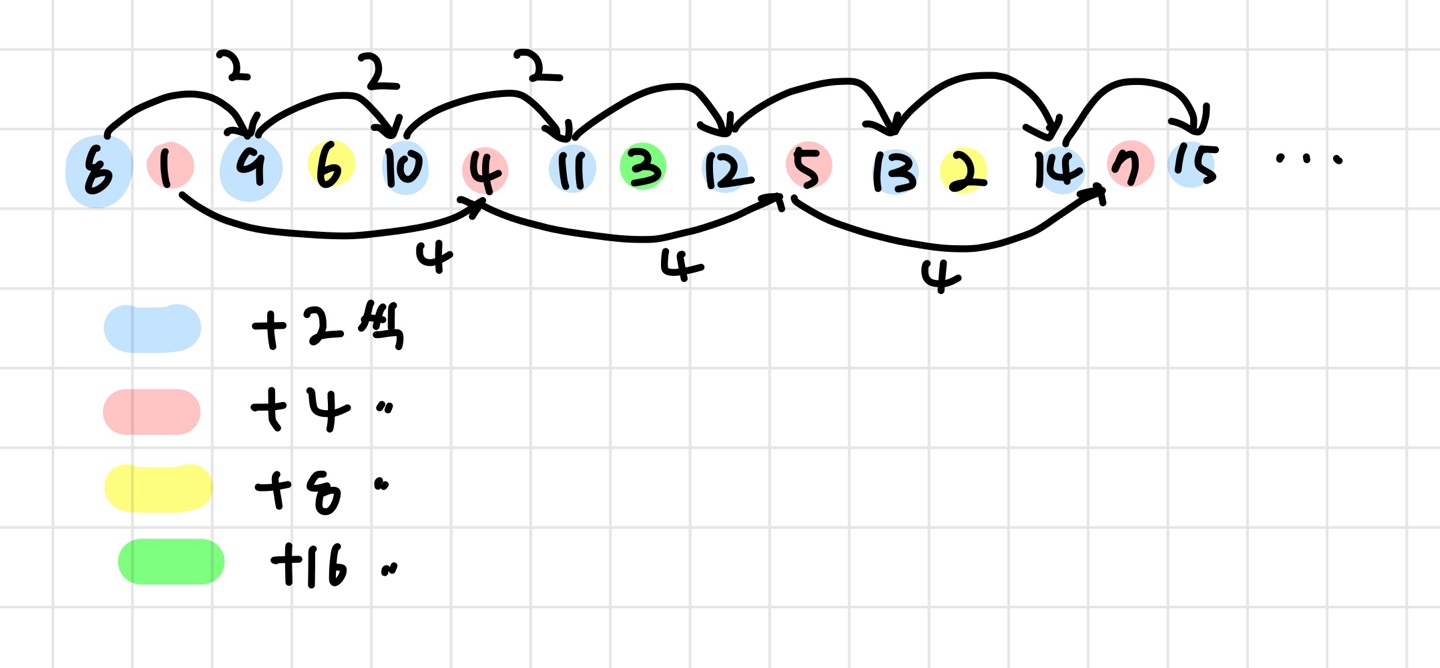 2 2 2
8 1 9 6 10 4 11 3 12 5 13 2 14 7 15 ...
4 4 4
+2씩
+4 〃
+8 〃
+16 〃